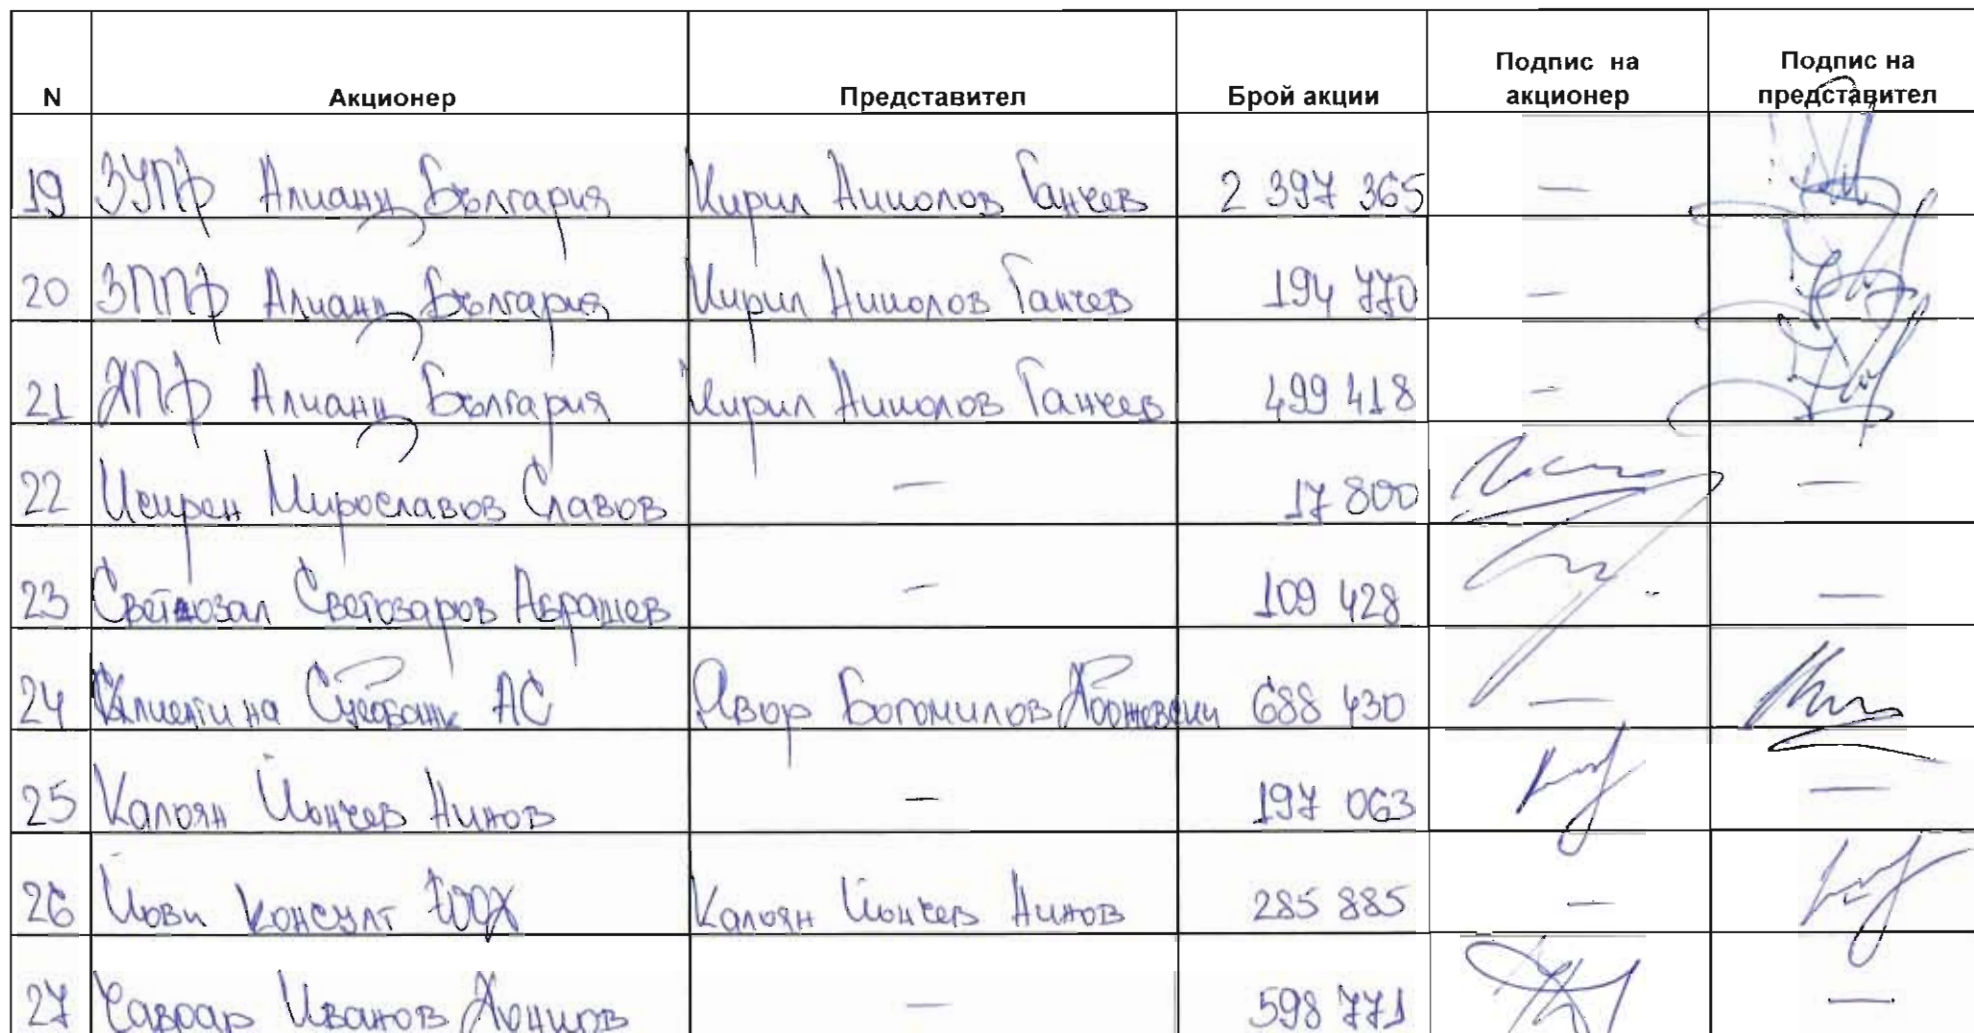 N Акционер Представител Брой акции Подпис на акционер Подпис на представител
19 ЗУПФ Алианц България Кирил Николов Ганчев 2 397 365 —
20 ЗППФ Алианц България Кирил Николов Ганчев 194 770 —
21 ДПФ Алианц България Кирил Николов Ганчев 499 418 —
22 Мирославов Славов — 17 800 —
23 Светозаров Аврамев — 109 428 —
24 Клиенти на АС Явор Богомилов 688 430 —
25 Калоян Йончев Нинов — 197 063 —
26 Йови консулт ЕООД Калоян Йончев Нинов 285 885 —
27 Иванов — 598 771 —